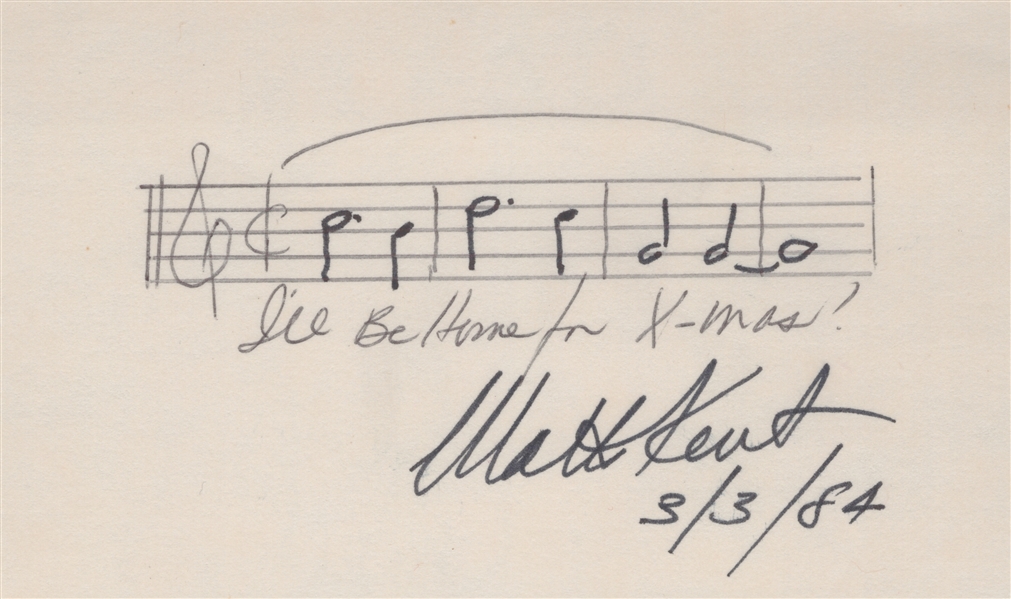 I'll Be Home for X-mas!
Matt Kent
3/3/84